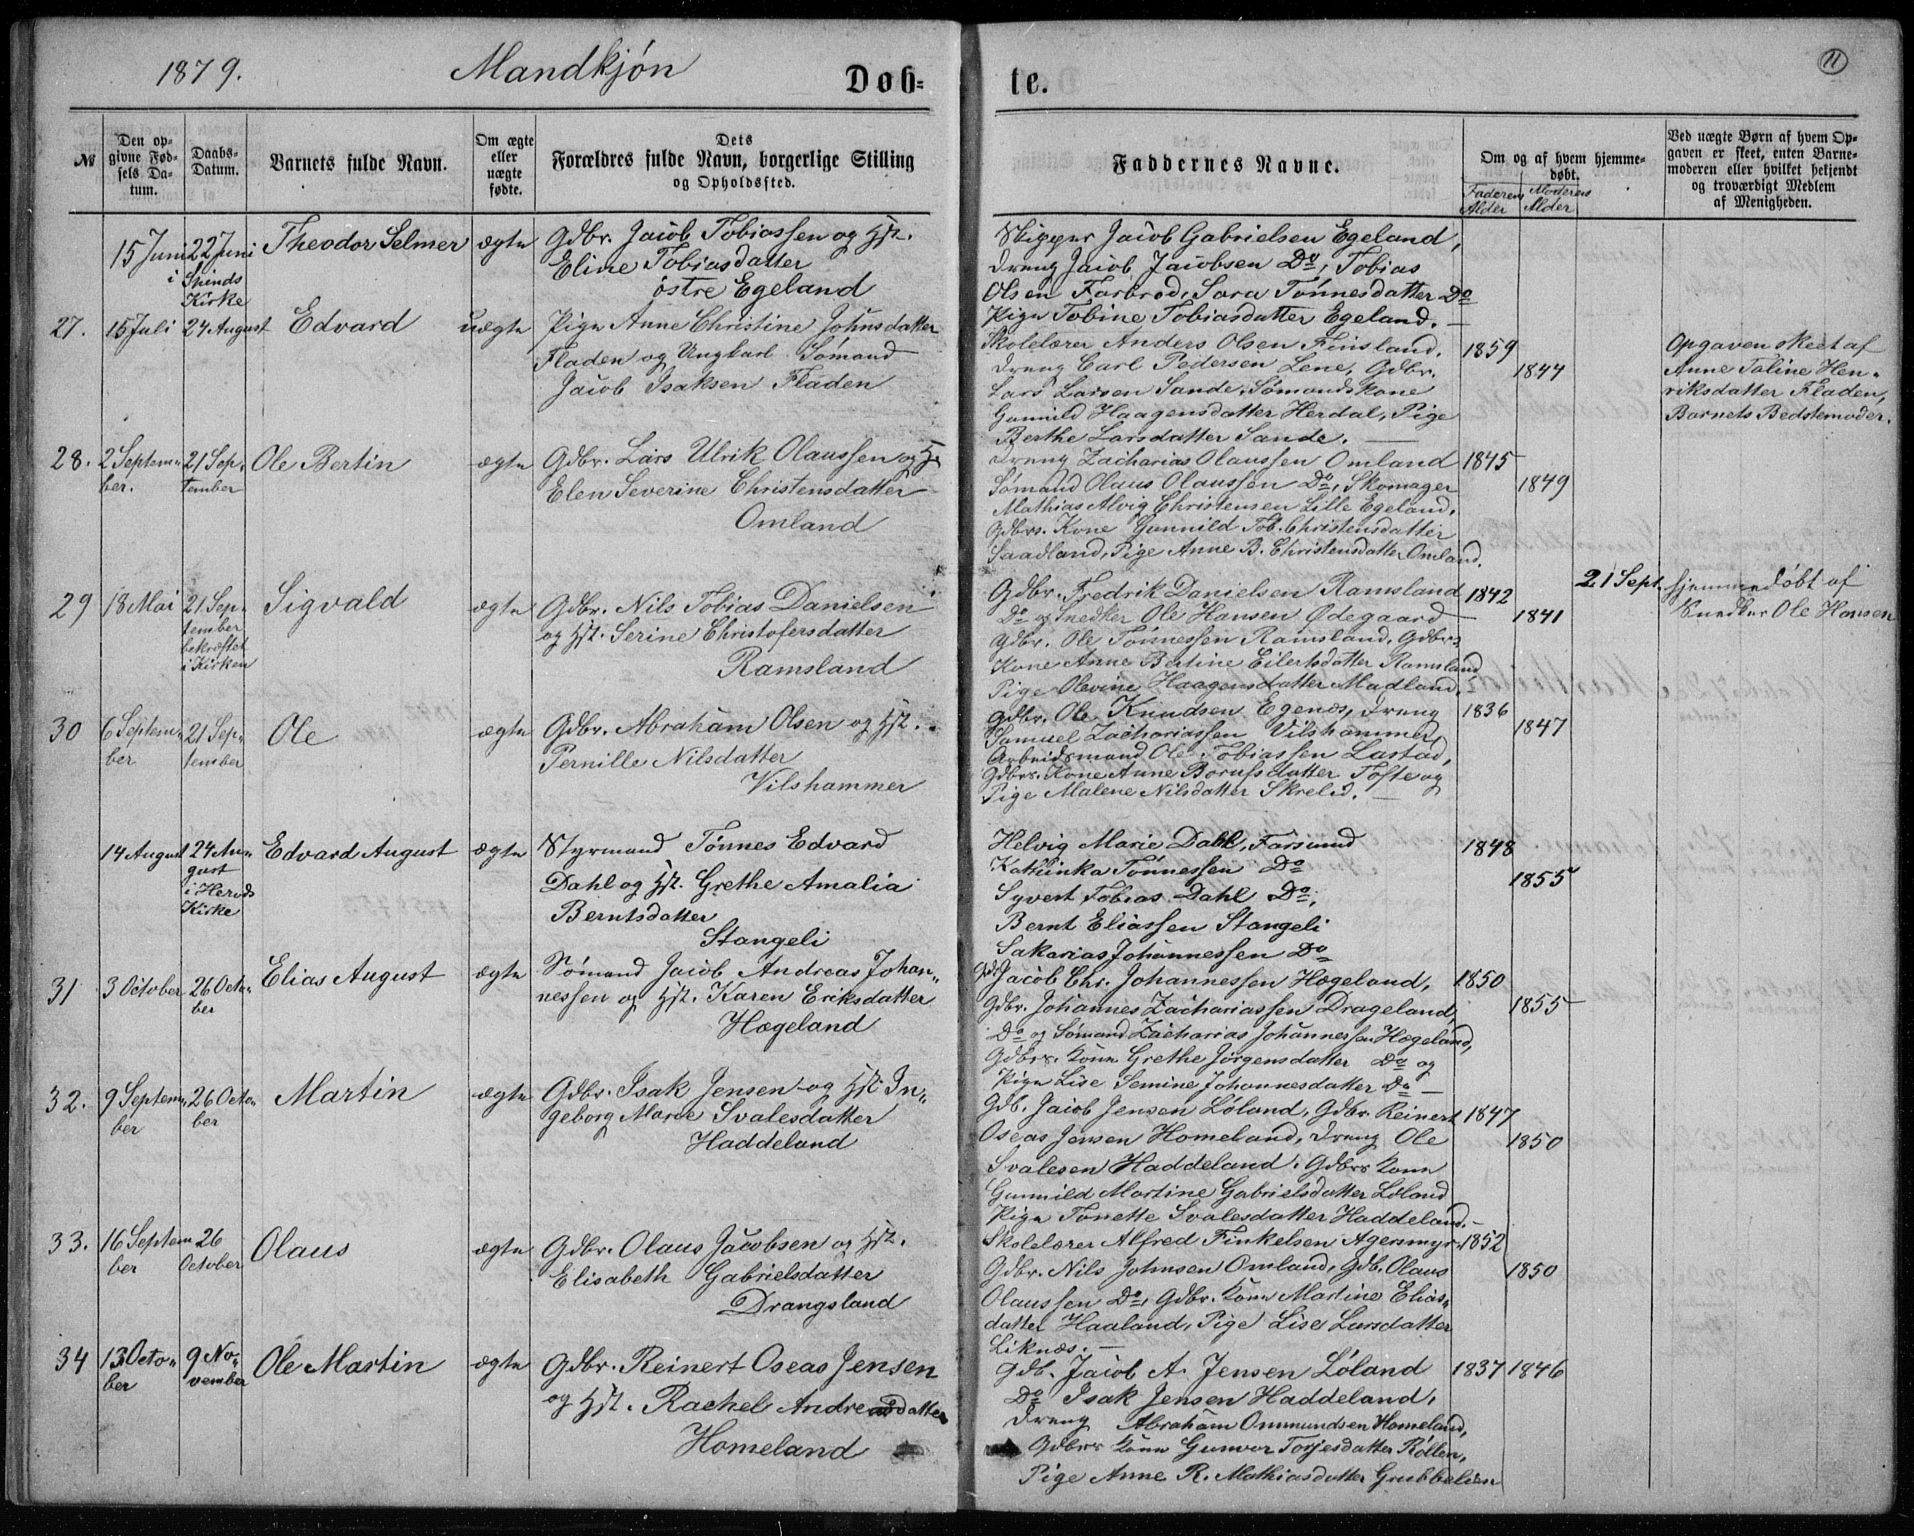 1879. Mandkjøn Døb-
№
Den op-
givne Fød-
sels Da-
tum.
Daabs-
Datum.
Barnets fulde Navn.
Om ægte
eller
uægte
fødte.
Dets
Forældres fulde Navn, borgerlige Stilling
og Opholdssted.
15 Juni 22 Juni Theodor Selmer ægte Gdbr. Jacob Tobiassen og Hst.
i Spinds Eline Tobiasdatter
Kirke østre Egeland
27. 15 Juli 24 August Edvard uægte Pige Anne Christine Johnsdatter
Fladen og Ungkarl Sømand
Jacob Isaksen Fladen
28. 2 Septem- 21 Sep- Ole Bertin ægte Gdbr. Lars Ulrik Olaussen og H
ber. tember Elen Severine Christensdatter
Omland
29 18 Mai 21 Sep- Sigvald ægte Gdbr. Nils Tobias Danielsen
tember og Hst. Serine Christofersdatter
bekræftet
i Kirken Ramsland
30 6 Septem- 21 Sep- Ole ægte Gdbr. Abraham Olsen og Hst.
ber tember Pernille Nilsdatter
Vilshammer
14 August 24 Au- Edvard August ægte Styrmand Tønnes Edvard
gust Dahl og Hst. Grethe Amalia
i Herads Berntsdatter
Kirke Stangeli
31 3 October 26 Octo- Elias August ægte Sømand Jacob Andreas Johan-
ber nessen og Hst. Karen Eriksdatter
Hægeland
32. 9 Septem- 26 Octo- Martin ægte Gdbr. Isak Jensen og Hst. In-
ber ber geborg Marie Svalesdatter
Haddeland
33. 16 Septem 26 Olaus ægte Gdbr. Olaus Jacobsen og Hst.
ber October Elisabeth Gabrielsdatter
Drangsland
34 13 Octo- 9 No- Ole Martin ægte Gdbr. Reinert Oseas Jensen
ber vember og Hst. Rachel Andreasdatter
Homeland
te.
11
Faddernes Navne.
Om og af hvem hjemme-
døbt.
Faderens Moderens
Alder Alder
Ved uægte Børn af hvem Op-
gaven er skeet, enten Barne-
moderen eller hvilket bekjendt
og troværdigt Medlem
af Menigheden.
Skipper Jacob Gabrielsen Egeland,
Dreng Jacob Jacobsen Do, Tobias
Olsen Farbrod, Sara Tønnesdatter Do
Pige Tobine Tobiasdatter Egeland. —
Skolelærer Anders Olsen Finsland. 1859 Opgaven skeet af
Dreng Carl Pedersen Lene, Gdbr. 1844 Anne Taline Hen-
Lars Larsen Sande, Sømandskone riksdatter Fladen,
Gunnild Haagensdatter Herdal, Pige Barnets Bedstemoder.
Berthe Larsdatter Sande. —
Dreng Zacharias Olaussen Omland 1845
Sømand Olaus Olaussen Do, Skomager 1849
Mathias Alvig Christensen Lille Egeland.
Gdbrs. Kone Gunnild Tob. Christensdatter
Saadland, Pige Anne B. Christensdatter Omland.
Gdbr. Fredrik Danielsen Ramsland 1842 21 Sept. hjemmedøbt af
Do og Snedker Ole Hansen Ødegaard 1841 Snedker Ole Hansen
Gdbr. Ole Tønnessen Ramsland, Gdbrs.
Kone Anne Bertine Eilertsdatter Ramsland
Pige Olevine Haagensdatter Madland.
Gdbr. Ole Knudsen Egenæs, Dreng 1836
Samuel Zachariassen Vilshammer, 1847
Arbeidsmand Ole Tobiassen Lastad,
Gdbrs. Kone Anne Borufsdatter Tofte og
Pige Malene Nilsdatter Skreled. —
Helvig Marie Dahl, Farsund 1848
Kathinka Tønnessen Do 1855
Syvert Tobias Dahl Do,
Bernt Eliassen Stangeli
Sakarias Johannessen Do
Gdbr Jacob Chr. Johannessen Hægeland, 1850
Gdbr. Johannes Zachariassen Drageland, 1855
Do og Sømand Zacharias Johannessen Hægeland,
Gdbrs. Kone Grethe Jørgensdatter Do og
Pige Lise Semine Johannesdatter Do —
Gdb. Jacob Jensen Løland, Gdbr. Reinert 1847
Oseas Jensen Homeland, Dreng Ole 1850
Svalesen Haddeland, Gdbrs Kone
Gunnild Martine Gabrielsdatter Løland
Pige Tonette Svalesdatter Haddeland. —
Skolelærer Alfred Finkelsen Agersmyr. 1852
Gdbr. Nils Johnsen Omland, Gdb. Olaus 1850
Olaussen Do, Gdbr. Kone Martine Elias-
datter Haaland, Pige Lise Larsdatter
Liknæs. —
Gdb. Jacob A. Jensen Løland 1837 1846
Do Isak Jensen Haddeland,
Dreng Abraham Ommundsen Homeland,
Gdbrs Kone Gunvor Torjesdatter Røllen,
Pige Anne R. Mathiasdatter Grubbelien